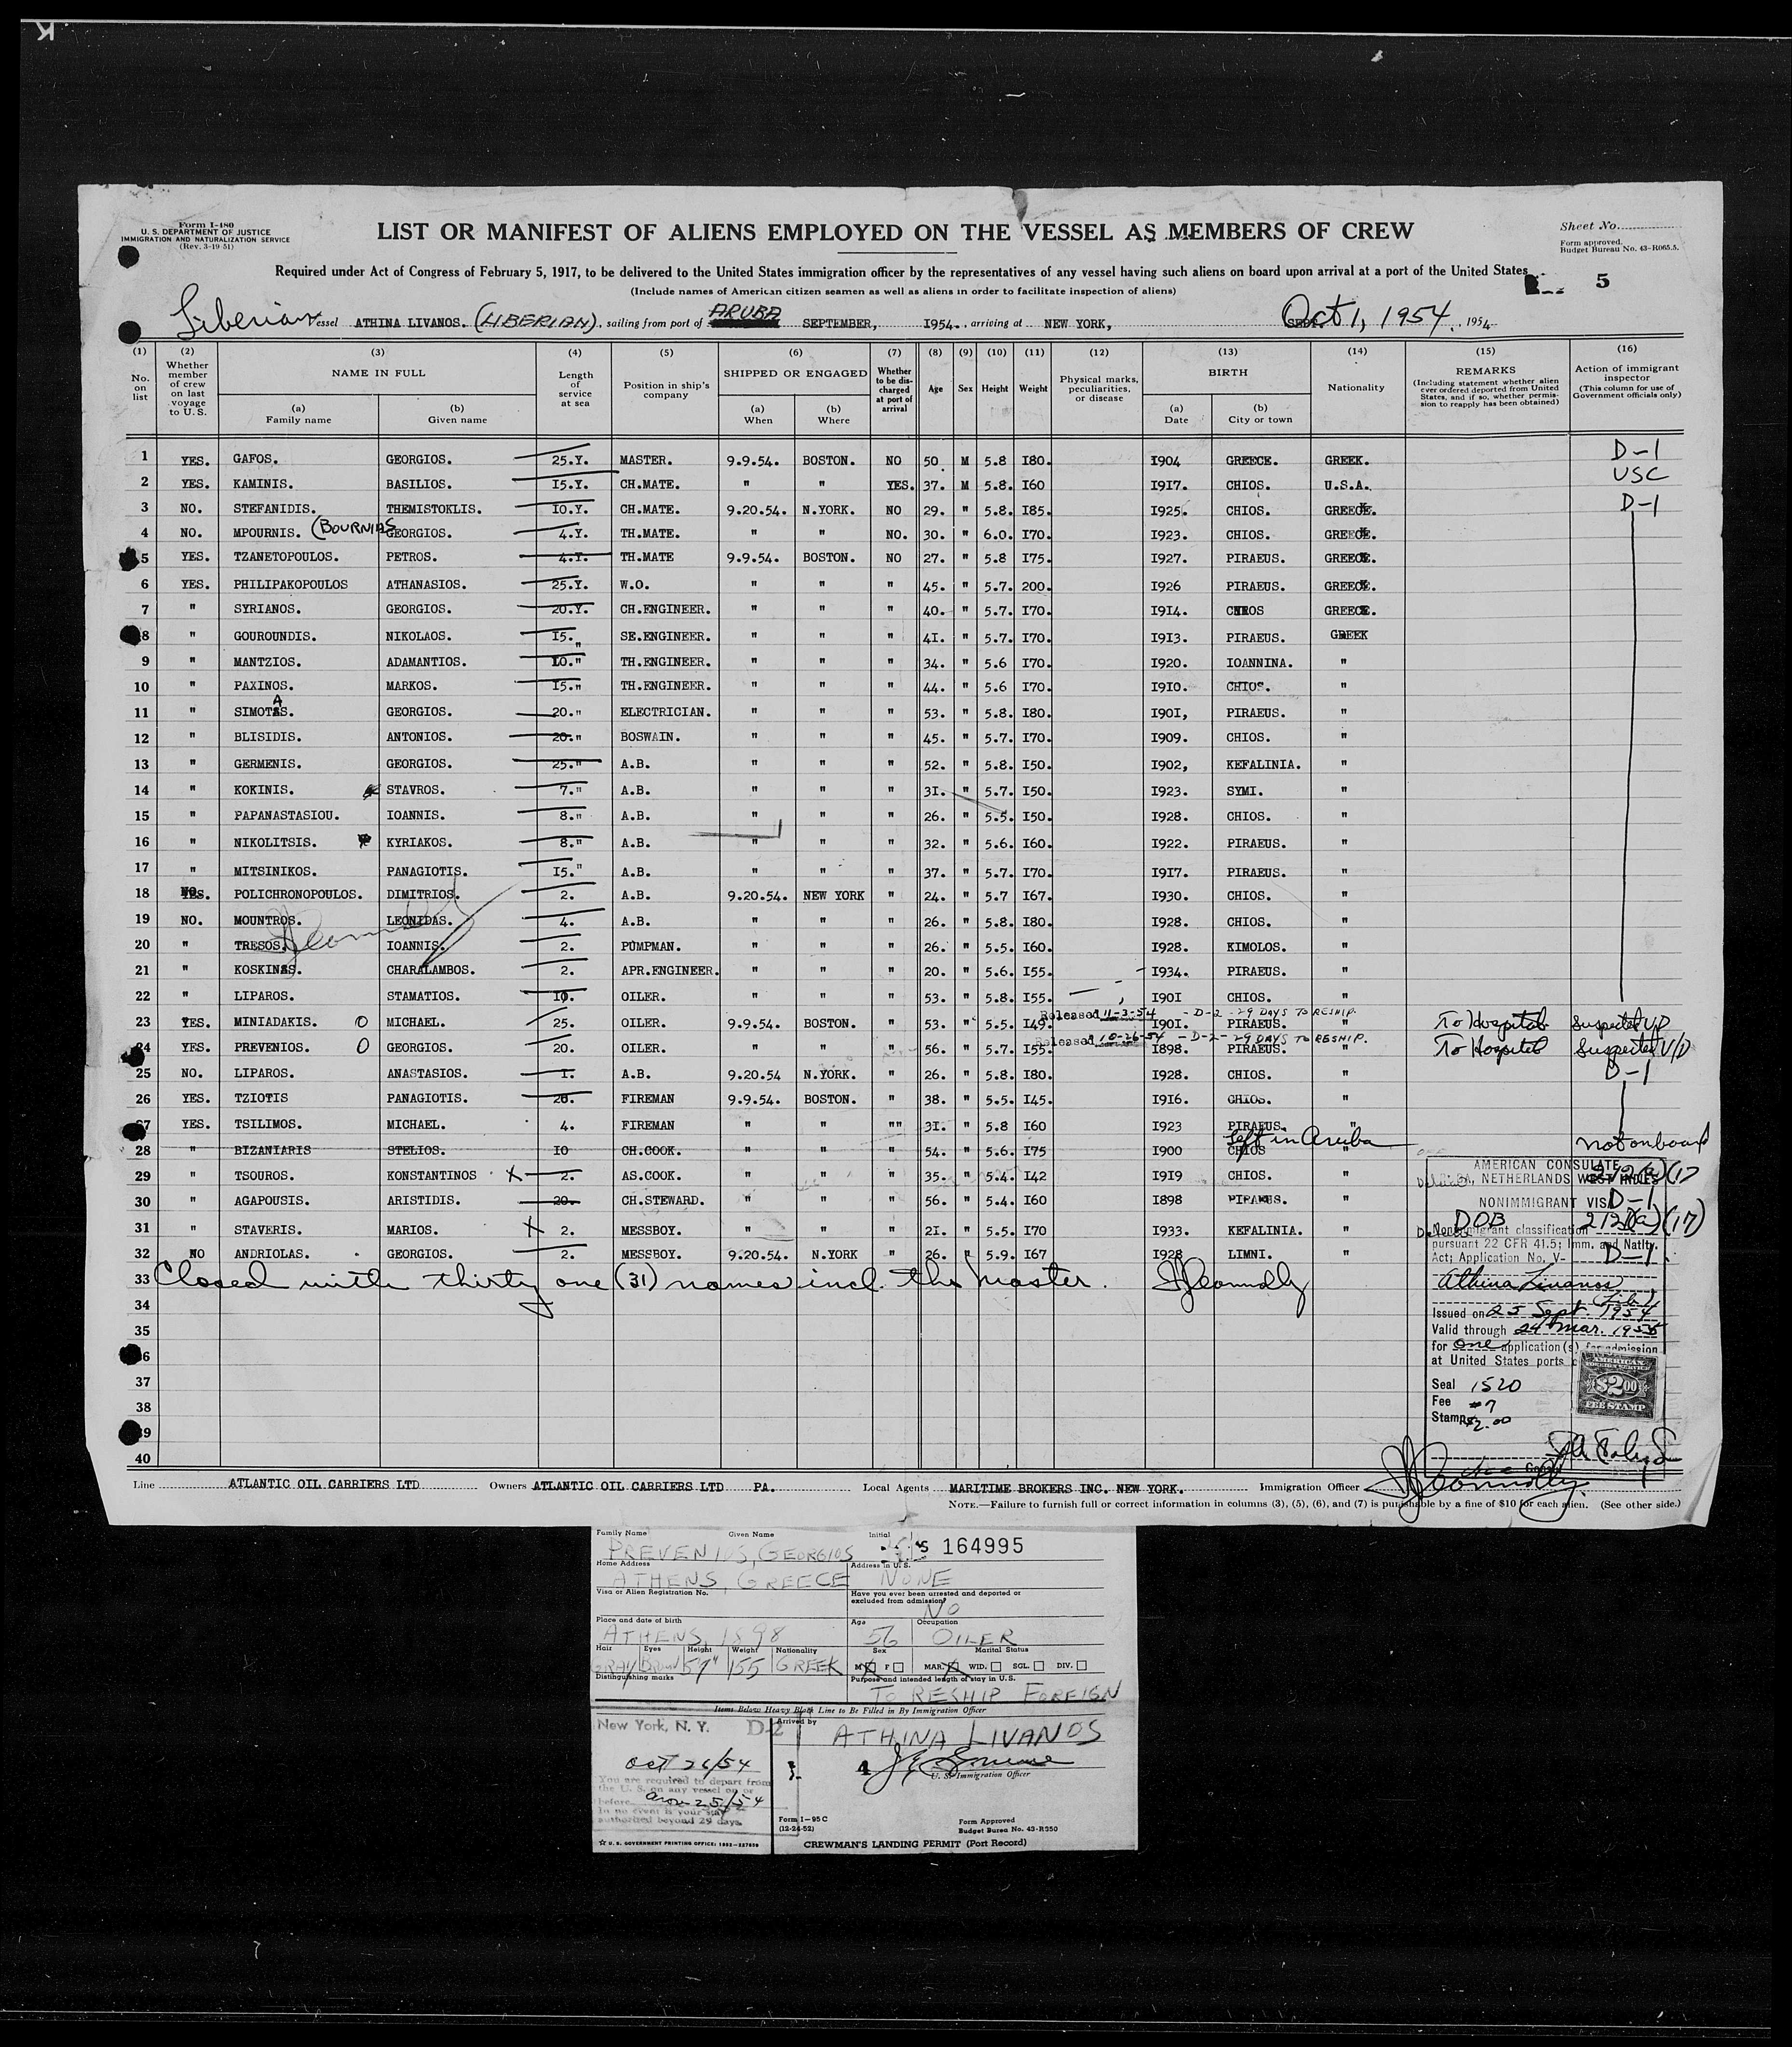 K
Form I-480
U. S. DEPARTMENT OF JUSTICE
IMMIGRATION AND NATURALIZATION SERVICE
(Rev. 3-19-51)
LIST OR MANIFEST OF ALIENS EMPLOYED ON THE VESSEL AS MEMBERS OF CREW
Sheet No.
Form approved.
Budget Bureau No. 43-R065.5.
Required under Act of Congress of February 5, 1917, to be delivered to the United States immigration officer by the representatives of any vessel having such aliens on board upon arrival at a port of the United States
5
(Include names of American citizen seamen as well as aliens in order to facilitate inspection of aliens)
Liberian Vessel ATHINA LIVANOS. (LIBERIAN), sailing from port of ARUBA SEPTEMBER, 1954., arriving at NEW YORK, Oct 1, 1954. 1954
(1) (2) (3) (4) (5) (6) (7) (8) (9) (10) (11) (12) (13) (14) (15) (16)
No. on list
Whether member of crew on last voyage to U.S.
NAME IN FULL
(a) Family name
(b) Given name
Length of service at sea
Position in ship's company
SHIPPED OR ENGAGED
(a) When
(b) Where
Whether to be discharged at port of arrival
Age
Sex
Height
Weight
Physical marks, peculiarities, or disease
BIRTH
(a) Date
(b) City or town
Nationality
REMARKS
(Including statement whether alien ever ordered deported from United States, and if so, whether permission to reapply has been obtained)
Action of immigrant inspector
(This column for use of Government officials only)
1 YES. GAFOS. GEORGIOS. 25.Y. MASTER. 9.9.54. BOSTON. NO 50. M 5.8 I80. I904 GREECE. GREEK. D-1
2 YES. KAMINIS. BASILIOS. I5.Y. CH.MATE. " " YES. 37. M 5.8. I60 I9I7. CHIOS. U.S.A. USC
3 NO. STEFANIDIS. THEMISTOKLIS. I0.Y. CH.MATE. 9.20.54. N.YORK. NO 29. " 5.8. I85. I925. CHIOS. GREEK. D-1
4 NO. MPOURNIS. (BOURNIAS GEORGIOS. 4.Y. TH.MATE. " " NO. 30. " 6.0. I70. I923. CHIOS. GREEK.
5 YES. TZANETOPOULOS. PETROS. 4.Y. TH.MATE 9.9.54. BOSTON. NO 27. " 5.8 I75 I927. PIRAEUS. GREEK.
6 YES. PHILIPAKOPOULOS ATHANASIOS. 25.Y. W.O. " " " 45. " 5.7. 200. I926 PIRAEUS. GREEK.
7 " SYRIANOS. GEORGIOS. 20.Y. CH.ENGINEER. " " " 40. " 5.7. I70. I9I4. CHIOS GREEK.
8 " GOUROUNDIS. NIKOLAOS. I5. " SE.ENGINEER. " " " 4I. " 5.7. I70. I9I3. PIRAEUS. GREEK
9 " MANTZIOS. ADAMANTIOS. I0." TH.ENGINEER. " " " 34. " 5.6 I70. I920. IOANNINA. "
10 " PAXINOS. MARKOS. I5." TH.ENGINEER. " " " 44. " 5.6 I70. I9I0. CHIOS. "
11 " SIMOTAS. GEORGIOS. 20." ELECTRICIAN. " " " 53. " 5.8. I80. I90I, PIRAEUS. "
12 " BLISIDIS. ANTONIOS. 20." BOSWAIN. " " " 45. " 5.7. I70. I909. CHIOS. "
13 " GERMENIS. GEORGIOS. 25." A.B. " " " 52. " 5.8. I50. I902, KEFALINIA. "
14 " KOKINIS. STAVROS. 7." A.B. " " " 3I. " 5.7. I50. I923. SYMI. "
15 " PAPANASTASIOU. IOANNIS. 8." A.B. " " " 26. " 5.5. I50. I928. CHIOS. "
16 " NIKOLITSIS. KYRIAKOS. 8." A.B. " " " 32. " 5.6. I60. I922. PIRAEUS. "
17 " MITSINIKOS. PANAGIOTIS. I5." A.B. " " " 37. " 5.7. I70. I9I7. PIRAEUS. "
18 NO YES. POLICHRONOPOULOS. DIMITRIOS. 2. A.B. 9.20.54. NEW YORK " 24. " 5.7 I67. I930. CHIOS. "
19 NO. MOUNTROS. LEONIDAS. 4. A.B. " " " 26. " 5.8. I80. I928. CHIOS. "
20 " TRESOS. IOANNIS. 2. PUMPMAN. " " " 26. " 5.5. I60. I928. KIMOLOS. "
21 " KOSKINAS. CHARALAMBOS. 2. APR.ENGINEER. " " " 20. " 5.6. I55. I934. PIRAEUS. "
22 " LIPAROS. STAMATIOS. I0. OILER. " " " 53. " 5.8. I55. I90I CHIOS. "
Released 11-3-54 - D-2 - 29 DAYS TO RESHIP.
23 YES. MINIADAKIS. O MICHAEL. 25. OILER. 9.9.54. BOSTON. " 53. " 5.5. I49. I90I. PIRAEUS. " To Hospital Suspected V/D
Released 10-26-54 - D-2 - 29 DAYS TO RESHIP.
24 YES. PREVENIOS. O GEORGIOS. 20. OILER. " " " 56. " 5.7. I55. I898. PIRAEUS. " To Hospital Suspected V/D
25 NO. LIPAROS. ANASTASIOS. I. A.B. 9.20.54 N.YORK. " 26. " 5.8. I80. I928. CHIOS. " D-1
26 YES. TZIOTIS PANAGIOTIS. 20. FIREMAN 9.9.54. BOSTON. " 38. " 5.5. I45. I9I6. CHIOS. "
27 YES. TSILIMOS. MICHAEL. 4. FIREMAN " " "" 3I. " 5.8 I60 I923 PIRAEUS. "
left in Aruba
28 " BIZANIARIS STELIOS. I0 CH.COOK. " " " 54. " 5.6. I75 I900 CHIOS " not on board
29 " TSOUROS. KONSTANTINOS X 2. AS.COOK. " " " 35. " 5.4. I42 I9I9 CHIOS. " 212(a)(17
30 " AGAPOUSIS. ARISTIDIS. 20. CH.STEWARD. " " " 56. " 5.4. I60 I898 PIRAEUS. " D-1
31 " STAVERIS. MARIOS. X 2. MESSBOY. " " " 2I. " 5.5. I70 I933. KEFALINIA. " DOB 212(a)(17)
32 NO ANDRIOLAS. GEORGIOS. 2. MESSBOY. 9.20.54. N.YORK " 26. " 5.9. I67 I928 LIMNI. " D-1
33 Closed with thirty one (31) names incl. the Master. Connolly
34
35
36
37
38
39
40
AMERICAN CONSULATE
NETHERLANDS WEST INDIES
NONIMMIGRANT VISA
Nonimmigrant classification
pursuant 22 CFR 41.5; Imm. and Natlty.
Act; Application No. V-
Athina Livanos
(Lib)
Issued on 25 Sept. 1954
Valid through 24 Mar. 1955
for One application(s) for admission
at United States ports
Seal 1520
Fee #7
Stamp $2.00
AMERICAN
FOREIGN SERVICE
$2.00
FEE STAMP
Line ATLANTIC OIL CARRIERS LTD Owners ATLANTIC OIL CARRIERS LTD PA. Local Agents MARITIME BROKERS INC. NEW YORK. Immigration Officer Connolly
NOTE.—Failure to furnish full or correct information in columns (3), (5), (6), and (7) is punishable by a fine of $10 for each alien. (See other side.)
Family Name Given Name Initial
PREVENIOS, GEORGIOS S 164995
Home Address Address in U. S.
ATHENS, GREECE NONE
Visa or Alien Registration No. Have you ever been arrested and deported or excluded from admission?
NO
Place and date of birth Age Occupation
ATHENS, 1898 56 OILER
Hair Eyes Height Weight Nationality Sex Marital Status
GRAY BROWN 57" 155 GREEK M F MAR. WID. SGL. DIV.
Distinguishing marks Purpose and intended length of stay in U.S.
TO RESHIP FOREIGN
Items Below Heavy Black Line to Be Filled in By Immigration Officer
New York, N. Y. D-2 Arrived by
ATHINA LIVANOS
Oct 26/54
4
U. S. Immigration Officer
You are required to depart from
the U. S. on any vessel on or
before Nov 25/54
In no event is your stay
authorized beyond 29 days.
Form I-95 C
(12-24-52)
Form Approved
Budget Burea No. 43-R350
☆ U. S. GOVERNMENT PRINTING OFFICE: 1952
CREWMAN'S LANDING PERMIT (Port Record)